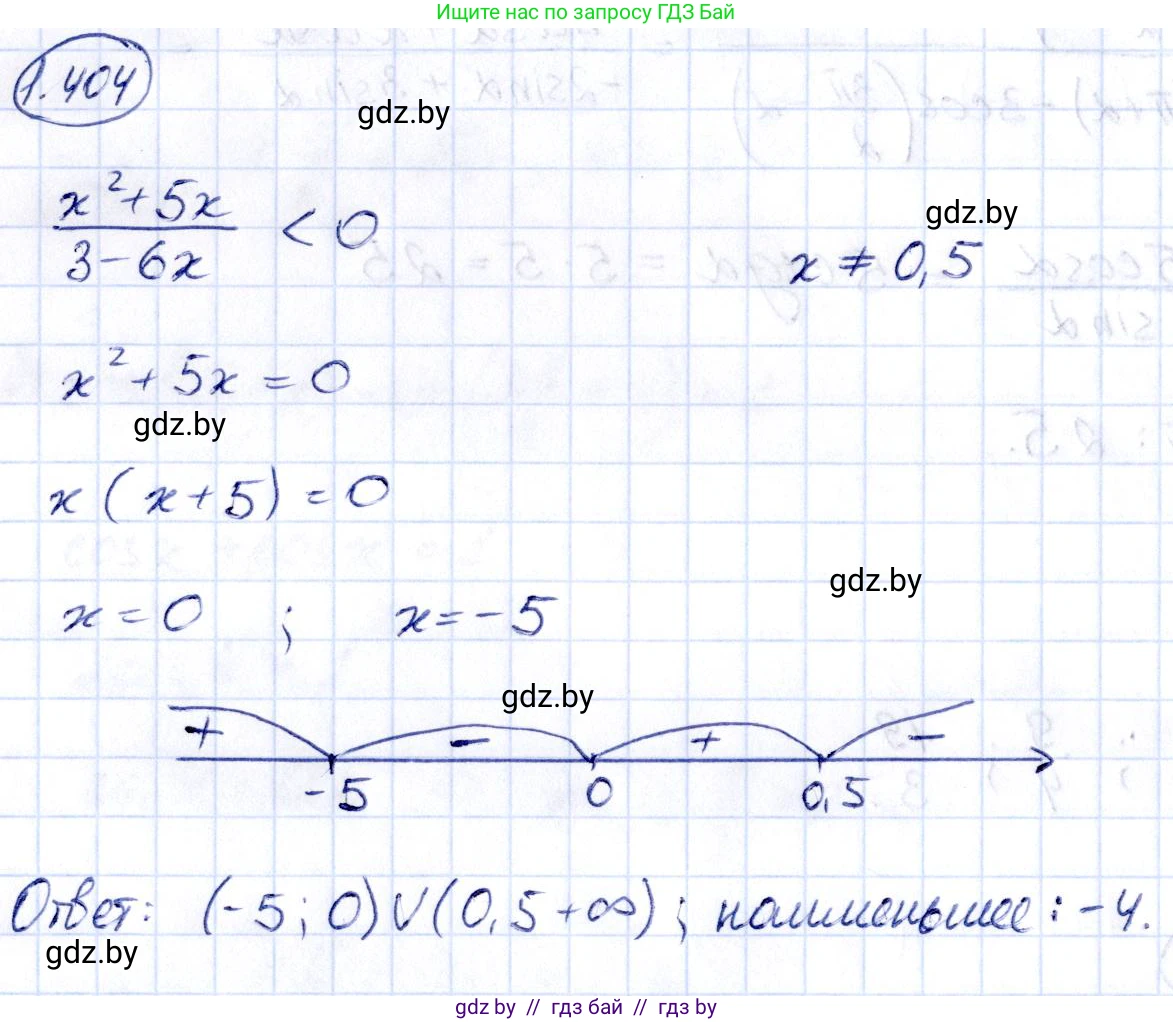 Ищите нас по запросу ГДЗ Бай
1.404
gdz.by
x² + 5x
3 - 6x
< 0
gdz.by
x ≠ 0,5
x² + 5x = 0
gdz.by
x (x + 5) = 0
gdz.by
x = 0 ; x = -5
gdz.by
+ - + -
-5 0 0,5
Ответ: (-5; 0) ∪ (0,5 +∞) ; наименьшее : -4.
gdz.by
gdz.by // гдз бай // гдз by